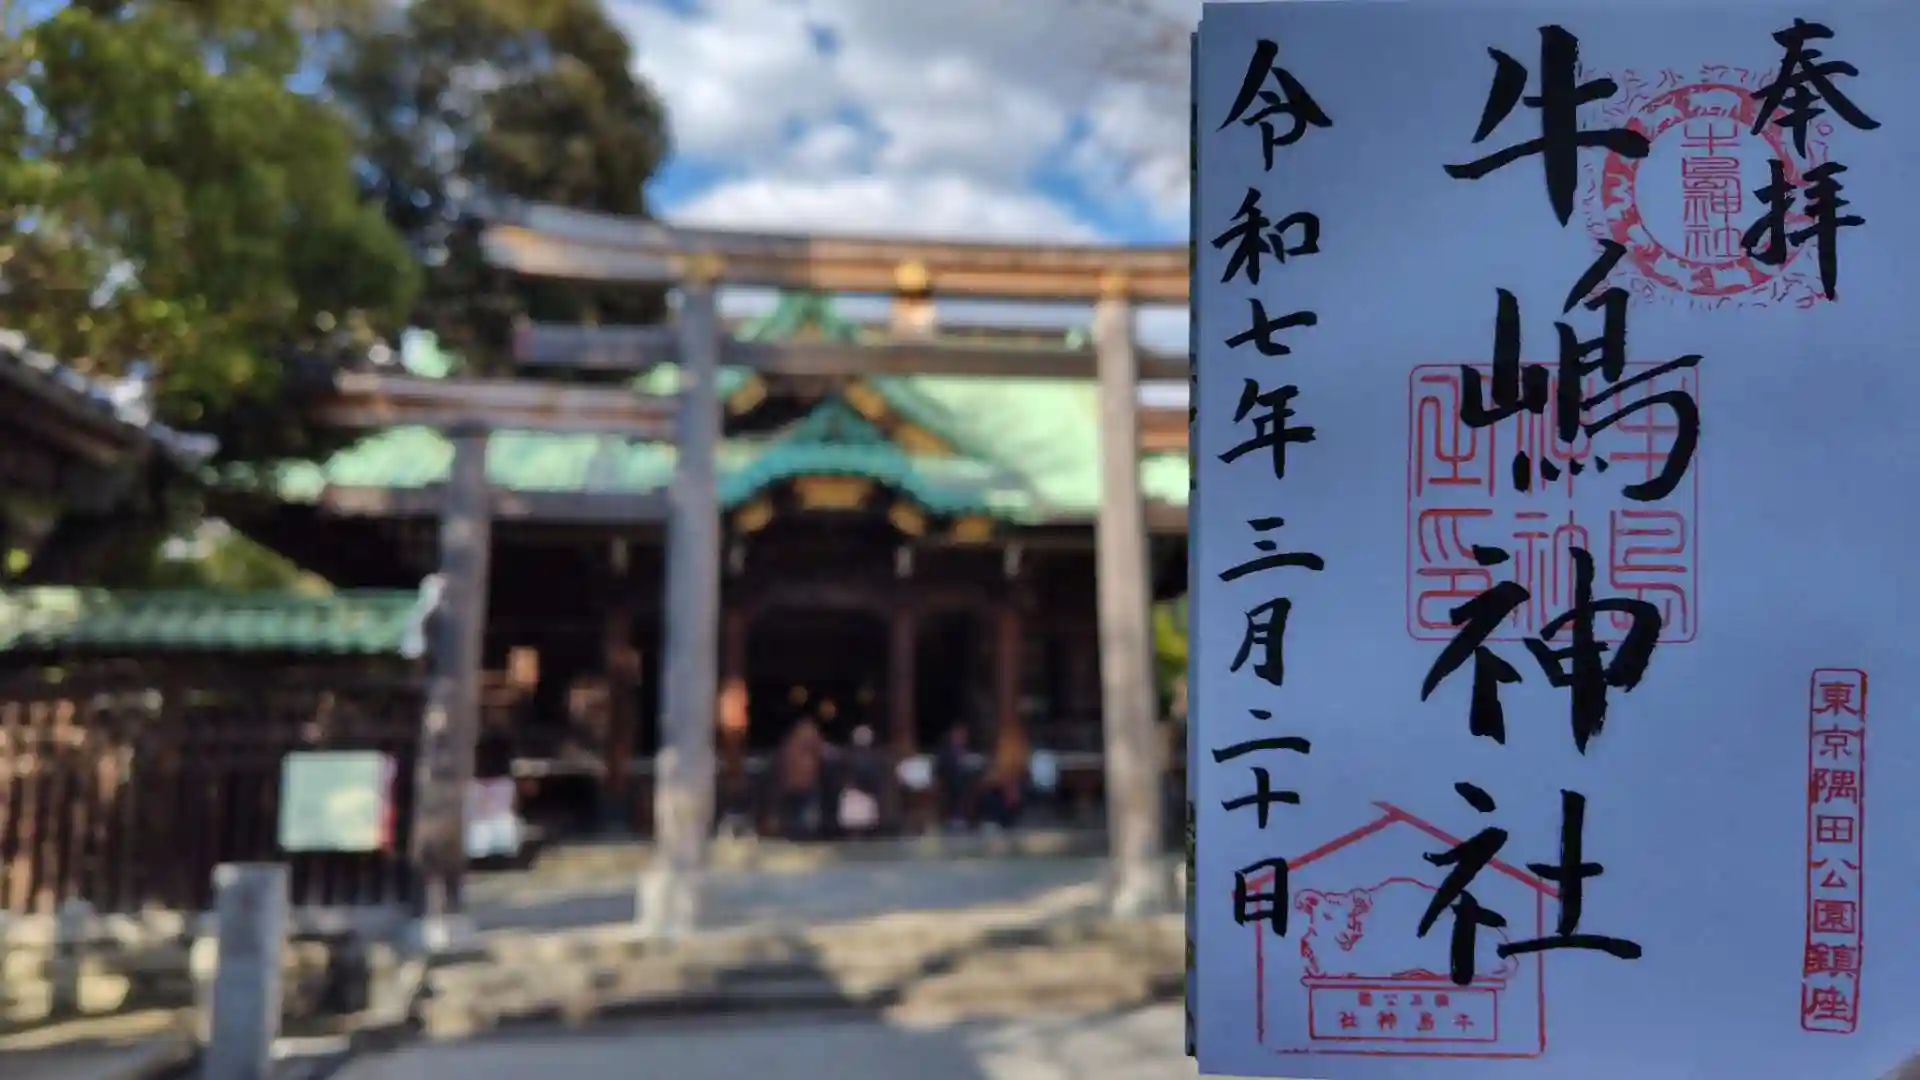 奉拝
牛嶋神社
令和七年三月二十日
牛島神社
牛島神社之印
東京隅田公園鎮座
牛島神社